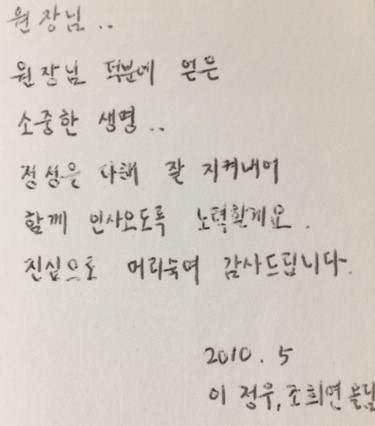 원장님..
원장님 덕분에 얻은
소중한 생명..
정성을 다해 잘 지켜내어
함께 인사오도록 노력할게요.
진심으로 머리숙여 감사드립니다.
2010. 5
이 정우, 조희연 올림